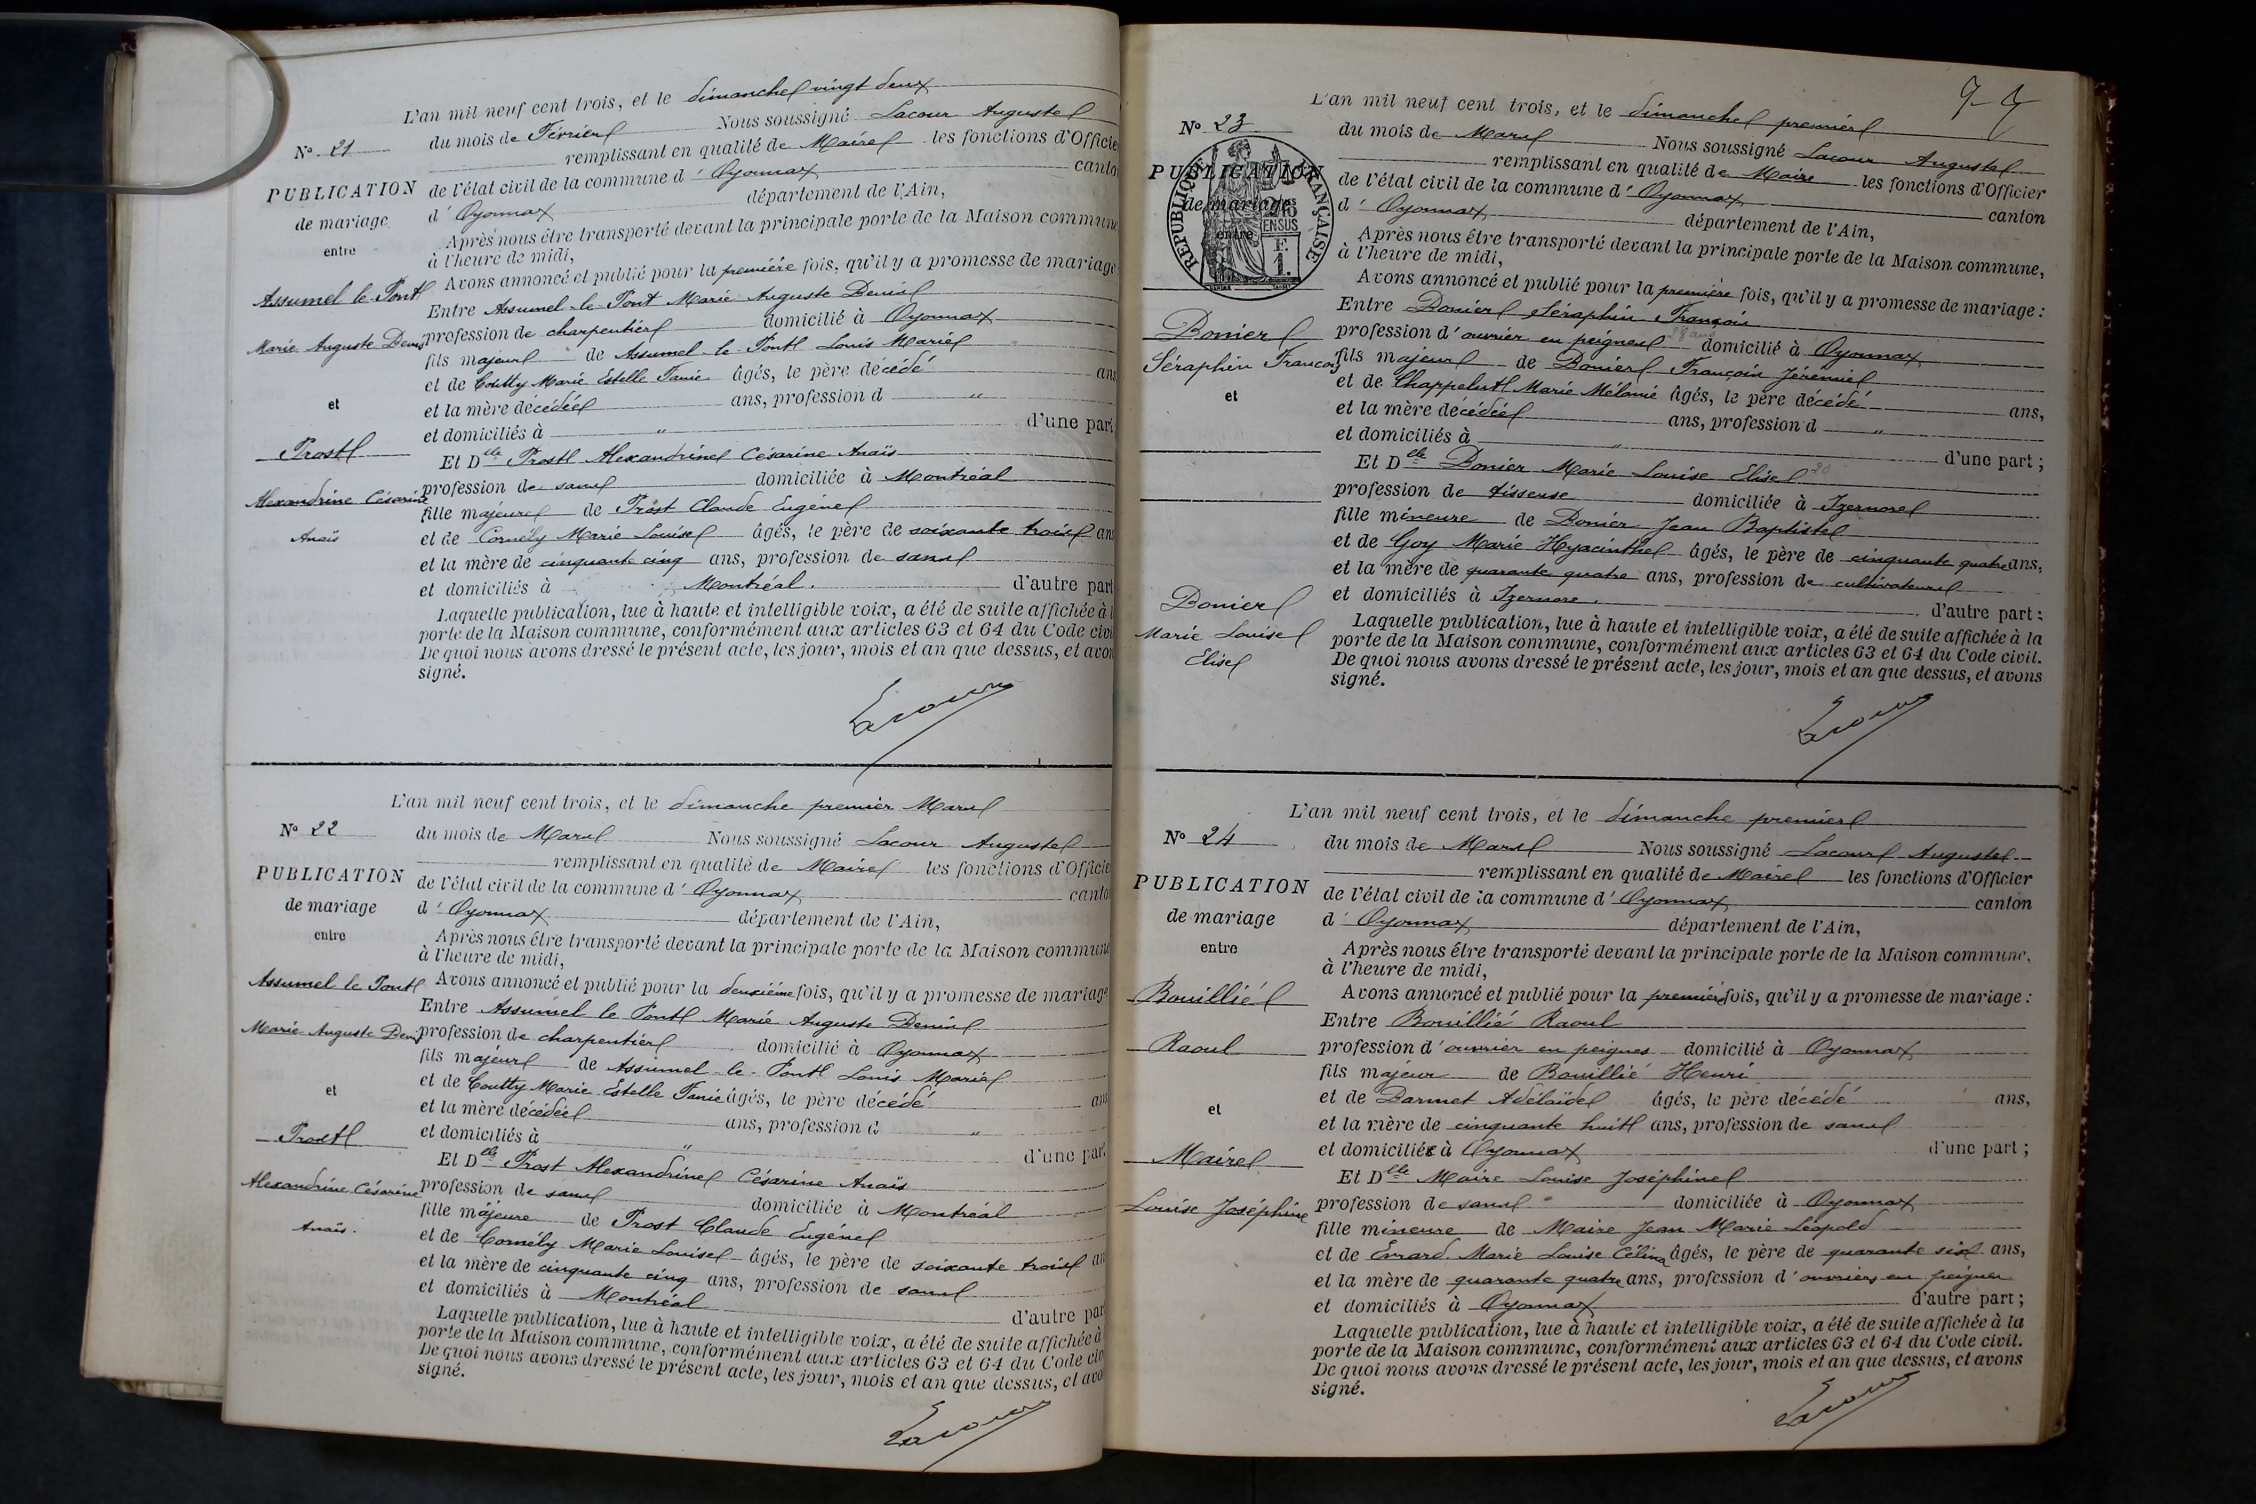 L'an mil neuf cent trois, et le dimanche vingt deux
du mois de Février Nous soussigné Lacour Auguste
Nº 21
remplissant en qualité de Maire les fonctions d'Officie
PUBLICATION
de l'état civil de la commune d' Oyonnax canto
de mariage
d' Oyonnax département de l'Ain,
entre
Après nous être transporté devant la principale porte de la Maison commune
à l'heure de midi,
Avons annoncé et publié pour la première fois, qu'il y a promesse de mariage
Assumel le Pont
Entre Assumel-le-Pont Marie Auguste Denis
Marie Auguste Denis
profession de charpentier domicilié à Oyonnax
fils majeur de Assumel-le-Pont Louis Marie
et de Coutty Marie Estelle Fanie âgés, le père décédé ans
et
et la mère décédée ans, profession d "
et domiciliés à " d'une part
Prost
Et Dlle Prost Alexandrine Césarine Anaïs
Alexandrine Césarine
profession de sans domiciliée à Montréal
Anaïs
fille majeure de Prost Claude Eugène
et de Cornély Marie Louise âgés, le père de soixante trois ans
et la mère de cinquante cinq ans, profession de sans
et domiciliés à Montréal. d'autre part
Laquelle publication, lue à haute et intelligible voix, a été de suite affichée à l
porte de la Maison commune, conformément aux articles 63 et 64 du Code civi
De quoi nous avons dressé le présent acte, les jour, mois et an que dessus, et avon
signé.
Lacour
L'an mil neuf cent trois, et le dimanche premier Mars
Nº 22
du mois de Mars Nous soussigné Lacour Auguste
remplissant en qualité de Maire les fonctions d'Officie
PUBLICATION
de l'état civil de la commune d' Oyonnax canto
de mariage
d' Oyonnax département de l'Ain,
entre
Après nous être transporté devant la principale porte de la Maison commune
à l'heure de midi,
Assumel le Pont
Avons annoncé et publié pour la deuxième fois, qu'il y a promesse de mariage
Entre Assumel le Pont Marie Auguste Denis
Marie Auguste Denis
profession de charpentier domicilié à Oyonnax
fils majeur de Assumel-le-Pont Louis Marie
et
et de Coutty Marie Estelle Fanie âgés, le père décédé ans
et la mère décédée ans, profession d "
Prost
et domiciliés à " d'une part
Et Dlle Prost Alexandrine Césarine Anaïs
Alexandrine Césarine
profession de sans domiciliée à Montréal
Anaïs.
fille majeure de Prost Claude Eugène
et de Cornély Marie Louise âgés, le père de soixante trois an
et la mère de cinquante cinq ans, profession de sans
et domiciliés à Montréal d'autre par
Laquelle publication, lue à haute et intelligible voix, a été de suite affichée à
porte de la Maison commune, conformément aux articles 63 et 64 du Code civ
De quoi nous avons dressé le présent acte, les jour, mois et an que dessus, et avo
signé.
Lacour
L'an mil neuf cent trois, et le dimanche premier
Nº 23
du mois de Mars Nous soussigné Lacour Auguste
remplissant en qualité de Maire les fonctions d'Officier
PUBLICATION
RÉPUBLIQUE FRANÇAISE
de l'état civil de la commune d' Oyonnax canton
de mariage
d' Oyonnax département de l'Ain,
entre
Après nous être transporté devant la principale porte de la Maison commune,
à l'heure de midi,
Avons annoncé et publié pour la première fois, qu'il y a promesse de mariage :
Entre Donier Séraphin François
Donier
profession d' ouvrier en peignes 28 ans domicilié à Oyonnax
Séraphin François
fils majeur de Donier François Jérémie
et
et de Chappelut Marie Mélanie âgés, le père décédé ans,
et la mère décédée ans, profession d "
et domiciliés à " d'une part ;
Et Dlle Donier Marie Louise Elise 20
profession de tisseuse domiciliée à Izernore
fille mineure de Donier Jean Baptiste
et de Goy Marie Hyacinthe âgés, le père de cinquante quatre ans,
Donier
et la mère de quarante quatre ans, profession de cultivateurs
Marie Louise
et domiciliés à Izernore. d'autre part :
Elise
Laquelle publication, lue à haute et intelligible voix, a été de suite affichée à la
porte de la Maison commune, conformément aux articles 63 et 64 du Code civil.
De quoi nous avons dressé le présent acte, les jour, mois et an que dessus, et avons
signé.
Lacour
L'an mil neuf cent trois, et le dimanche premier
Nº 24
du mois de Mars Nous soussigné Lacour Auguste
remplissant en qualité de Maire les fonctions d'Officier
PUBLICATION
de l'état civil de la commune d' Oyonnax canton
de mariage
d' Oyonnax département de l'Ain,
entre
Après nous être transporté devant la principale porte de la Maison commune,
à l'heure de midi,
Bouillié
Avons annoncé et publié pour la première fois, qu'il y a promesse de mariage :
Entre Bouillié Raoul
Raoul
profession d' ouvrier en peignes domicilié à Oyonnax
fils majeur de Bouillié Henri
et
et de Darmet Adélaïde âgés, le père décédé ans,
et la mère de cinquante huit ans, profession de sans
Maire
et domiciliée à Oyonnax d'une part ;
Et Dlle Maire Louise Joséphine
Louise Joséphine
profession de sans domiciliée à Oyonnax
fille mineure de Maire Jean Marie Léopold
et de Errard Marie Louise Célina âgés, le père de quarante six ans,
et la mère de quarante quatre ans, profession d' ouvriers en peignes
et domiciliés à Oyonnax d'autre part ;
Laquelle publication, lue à haute et intelligible voix, a été de suite affichée à la
porte de la Maison commune, conformément aux articles 63 et 64 du Code civil.
De quoi nous avons dressé le présent acte, les jour, mois et an que dessus, et avons
signé.
Lacour